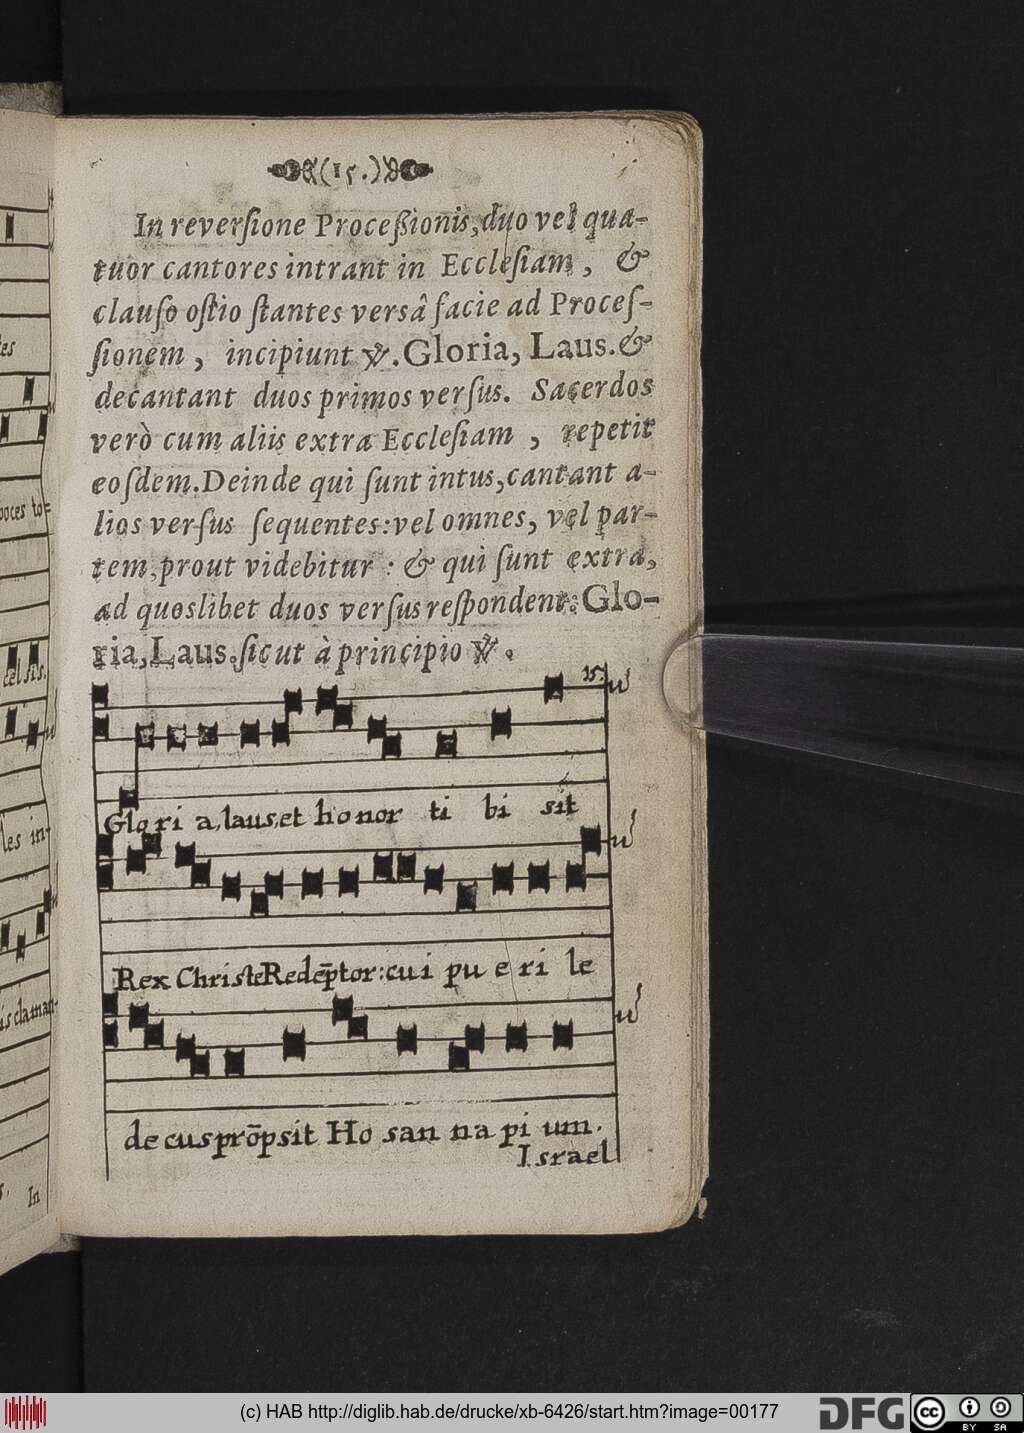 (15.)
In reverſione Proceßionis, duo vel qua-
tuor cantores intrant in Eccleſiam, &
clauſo oſtio ſtantes versâ facie ad Proceſ-
ſionem, incipiunt ℣. Gloria, Laus. &
decantant duos primos verſus. Sacerdos
verò cum aliis extra Eccleſiam, repetit
eoſdem. Deinde qui ſunt intus, cantant a-
lios verſus ſequentes: vel omnes, vel par-
tem, prout videbitur: & qui ſunt extra,
ad quoslibet duos verſus reſpondent: Glo-
ria, Laus. ſicut à principio ℣.
15.
Glo ri a, laus, et ho nor ti bi sit
Rex Christe Redēptor: cui pu e ri le
de cus prōpsit Ho san na pi um.
Israel
tes
voces to=
cel sis.
les in-
is claman-
s.
In
(c) HAB http://diglib.hab.de/drucke/xb-6426/start.htm?image=00177
DFG
cc
BY SA